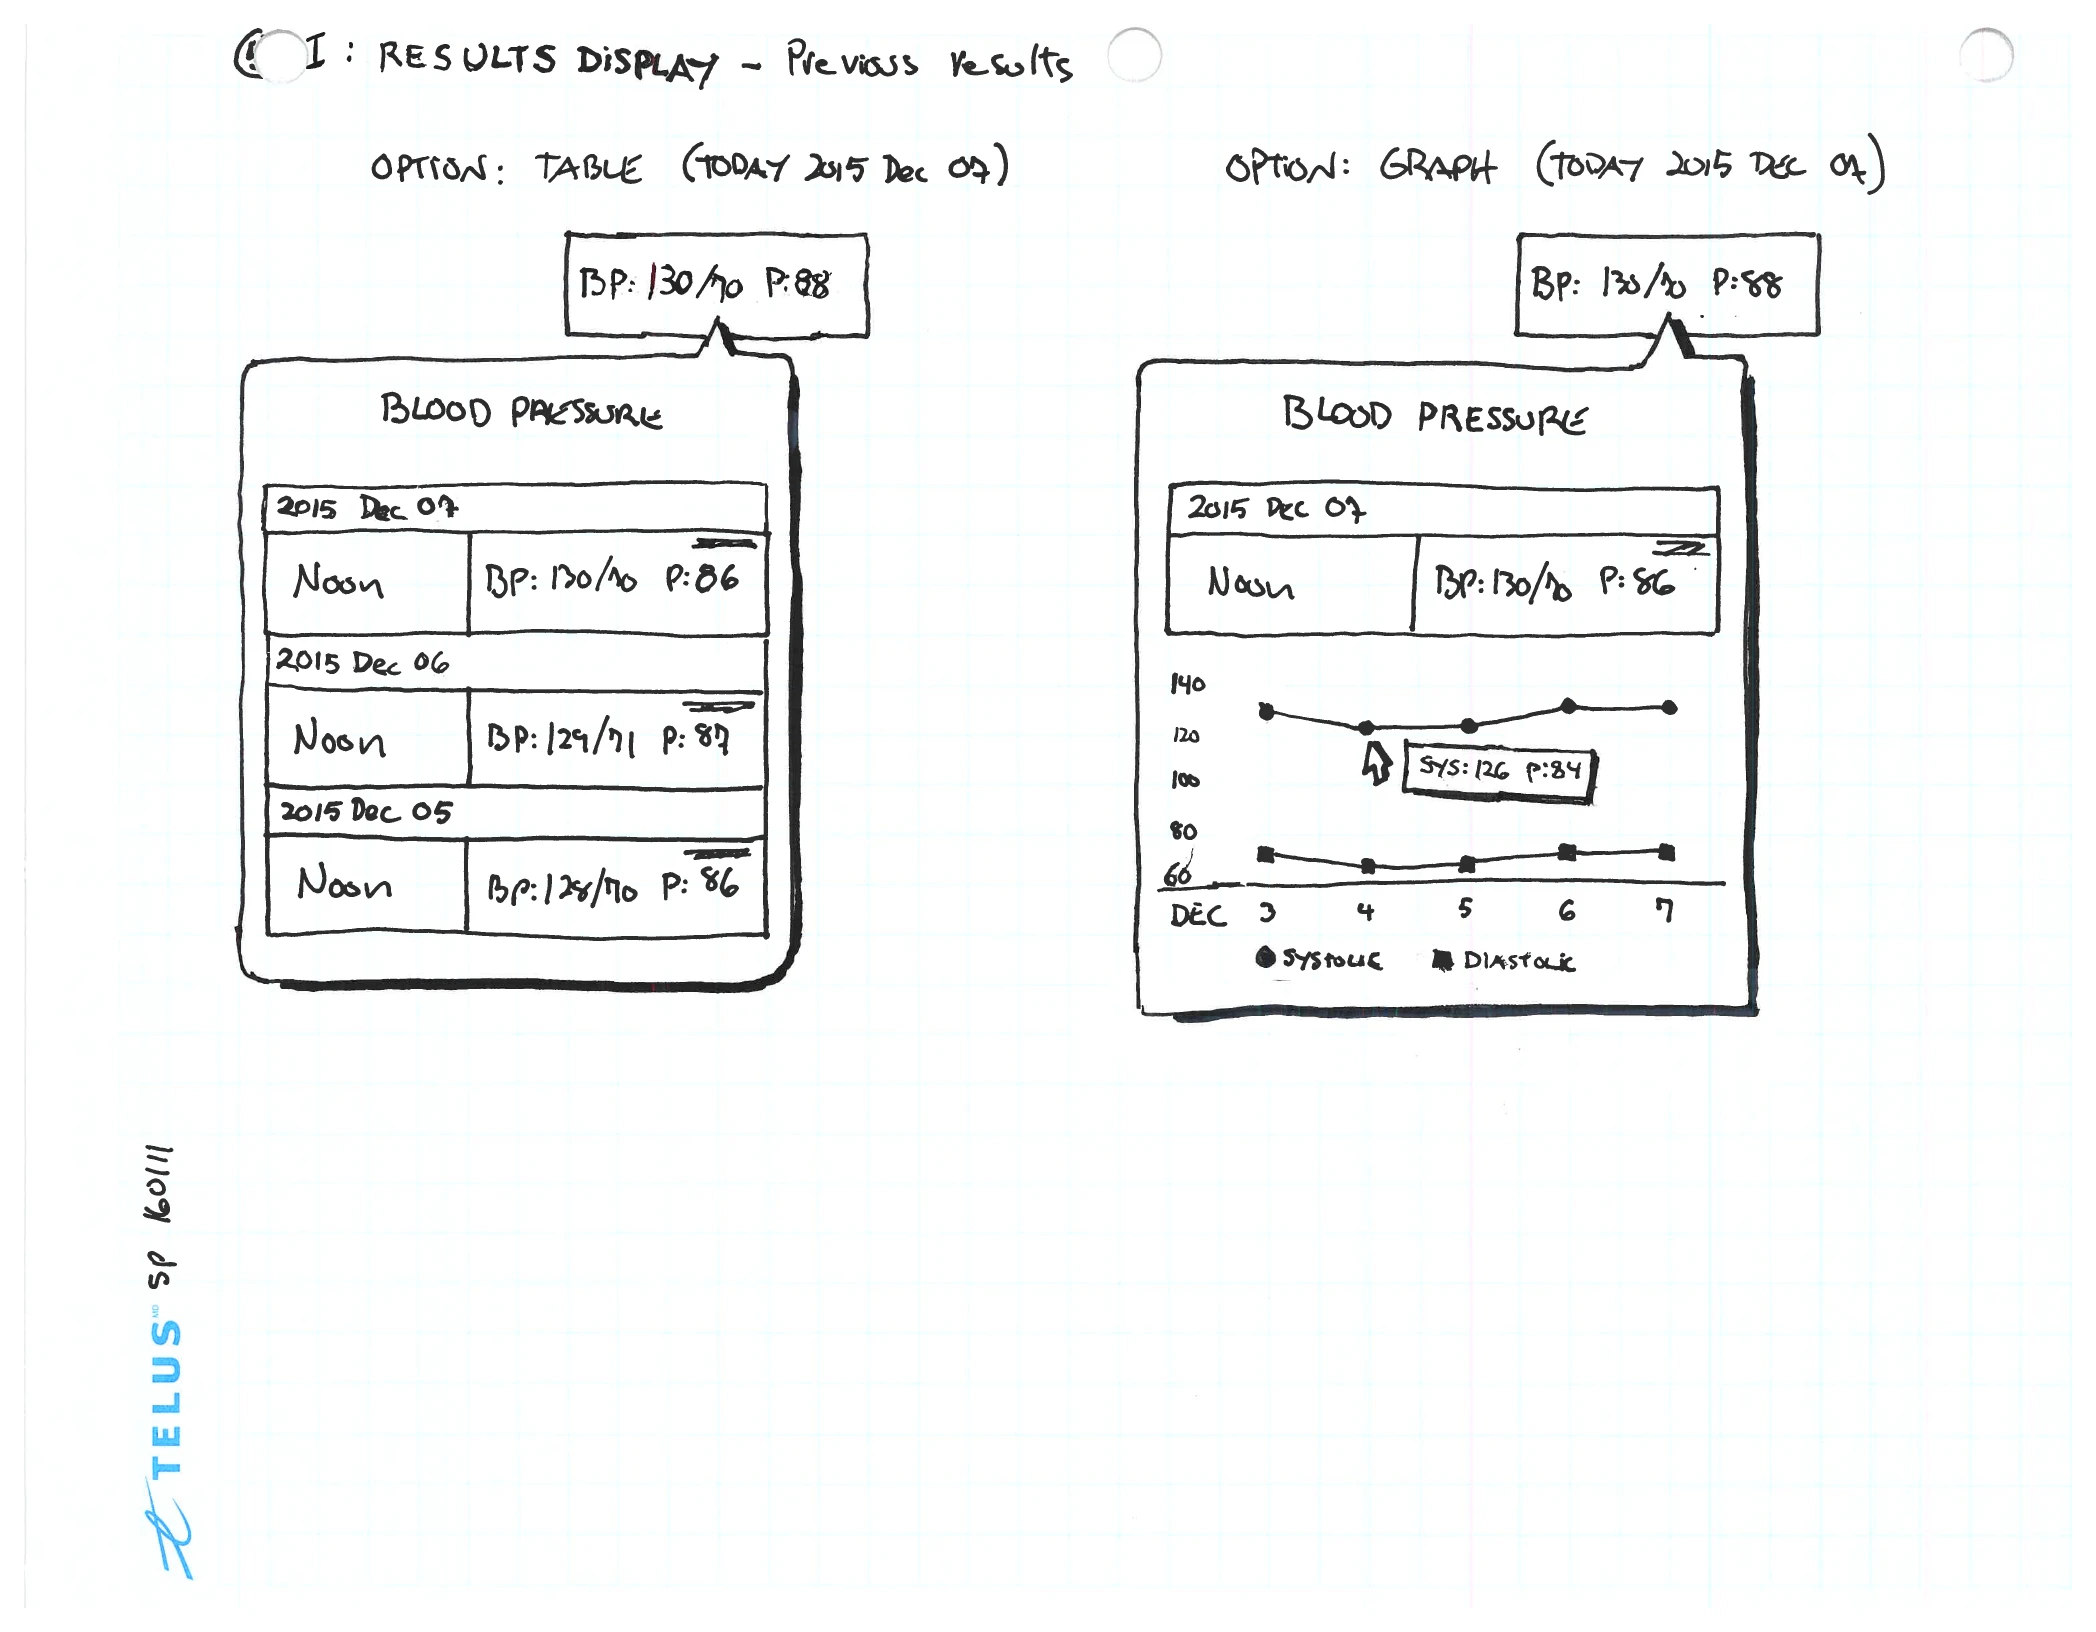 I: RESULTS DISPLAY - Previous results
OPTION: TABLE (TODAY 2015 Dec 07)
BP: 130/70 P:88
BLOOD PRESSURE
2015 Dec 07
Noon BP: 130/70 P:86
2015 Dec 06
Noon BP: 129/71 P: 87
2015 Dec 05
Noon BP: 128/70 P: 86
OPTION: GRAPH (TODAY 2015 DEC 07)
BP: 130/70 P:88
BLOOD PRESSURE
2015 Dec 07
Noon BP: 130/70 P: 86
140
120
100
80
60
SYS: 126 P:84
DEC 3 4 5 6 7
SYSTOLIC DIASTOLIC
TELUS MD SP 160111